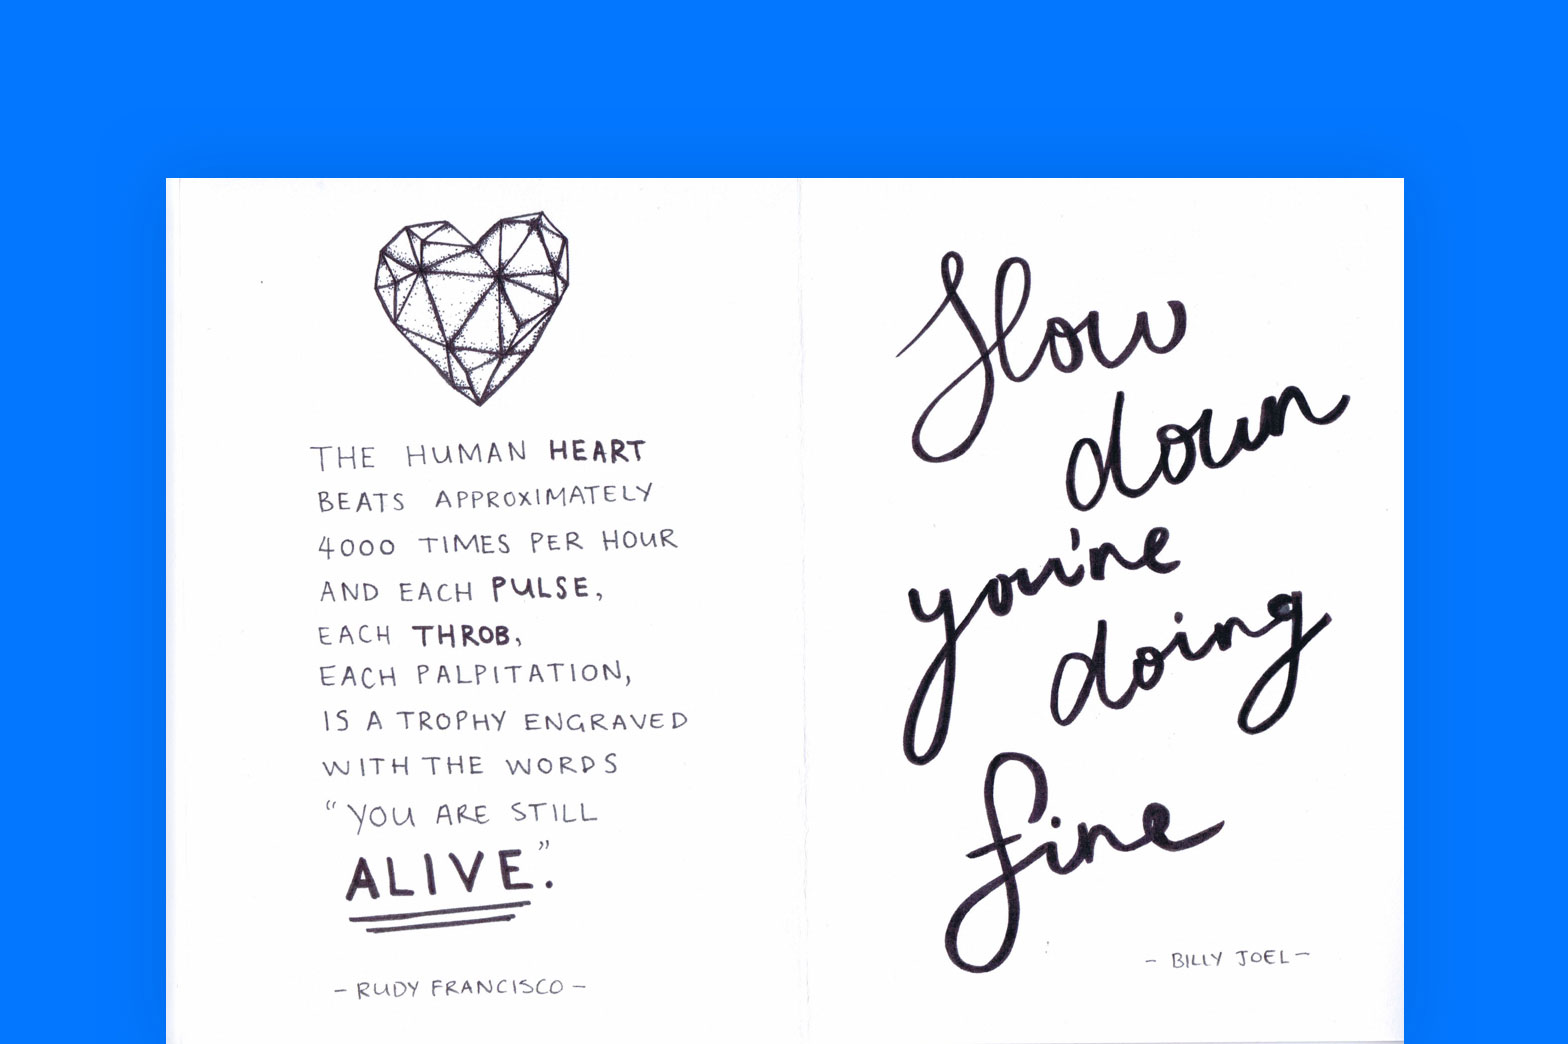 THE HUMAN HEART
BEATS APPROXIMATELY
4000 TIMES PER HOUR
AND EACH PULSE,
EACH THROB,
EACH PALPITATION,
IS A TROPHY ENGRAVED
WITH THE WORDS
“YOU ARE STILL
ALIVE.”
- RUDY FRANCISCO -
Slow
down
you're
doing
fine
- BILLY JOEL -